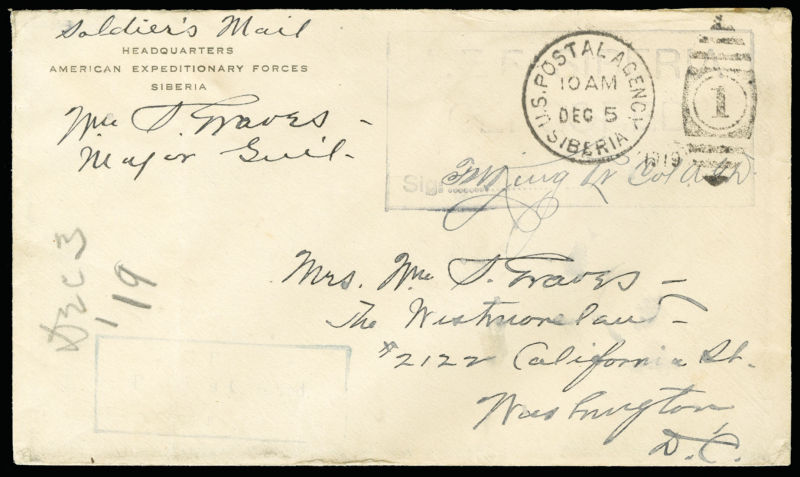 Soldier's Mail
HEADQUARTERS
AMERICAN EXPEDITIONARY FORCES
SIBERIA
Wm S. Graves –
Major Gen'l –
U.S. POSTAL AGENCY
10 AM
DEC 5
SIBERIA
1919
1
Sig.
Dec 3
/19
Mrs. Wm S. Graves –
The Westmoreland –
#2122 California St.
Washington,
D.C.